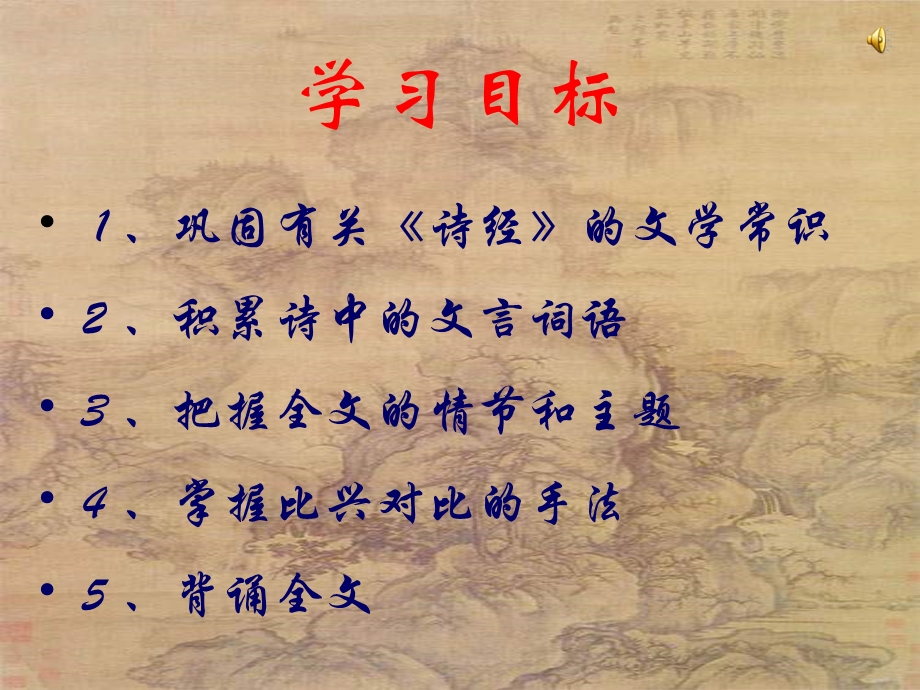 学习目标
• 1、巩固有关《诗经》的文学常识
• 2、积累诗中的文言词语
• 3、把握全文的情节和主题
• 4、掌握比兴对比的手法
• 5、背诵全文